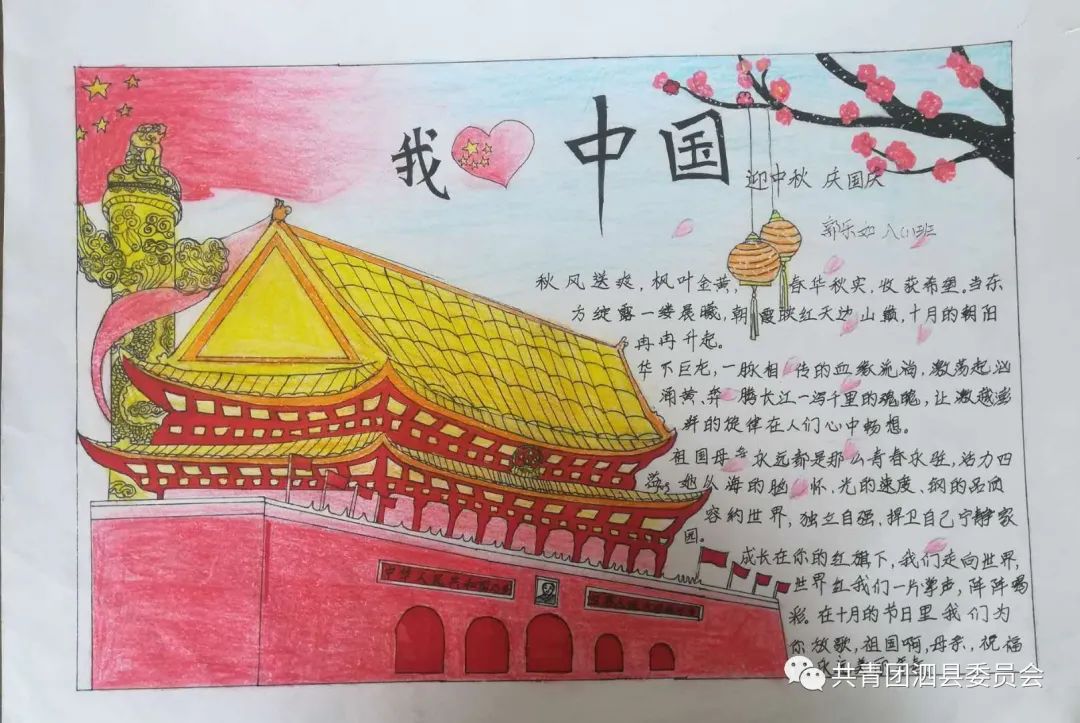 我 中国
迎中秋 庆国庆
郭乐如 八(1)班
秋风送爽，枫叶金黄， 春华秋实，收获希望。当东
方绽露一缕晨曦，朝霞映红天边山巅，十月的朝阳
冉冉升起。
华下巨龙，一脉相传的血缘流淌，激荡起汹
涌黄、奔腾长江一泻千里的魂魄，让激越澎
湃的旋律在人们心中畅想。
祖国母亲永远都是那么青春永驻，活力四
溢。她以海的胸怀、光的速度、钢的品质
容纳世界，独立自强，捍卫自己宁静家
园。
成长在你的红旗下，我们走向世界，
世界红我们一片掌声，阵阵喝
彩。在十月的节日里我们为
你放歌，祖国啊，母亲，祝福
中华人民共和国
共青团泗县委员会